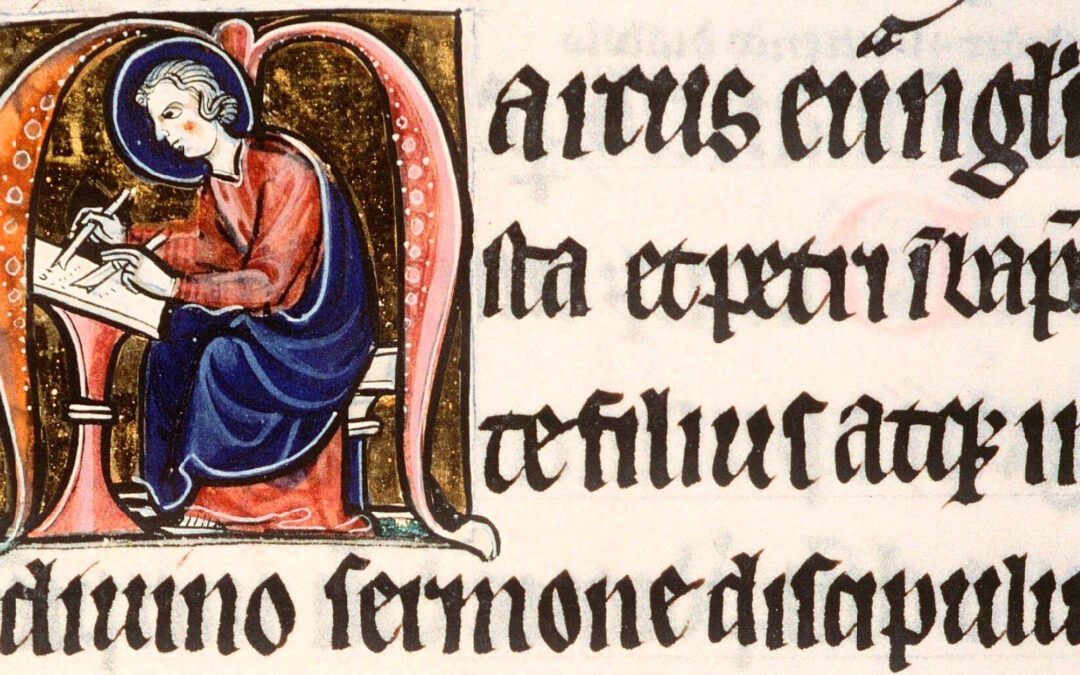 Marcus eūangl̄i
ſta et petri ī bap̄
te filiuſ atqꝫ in
diuino ſermone diſcipulu